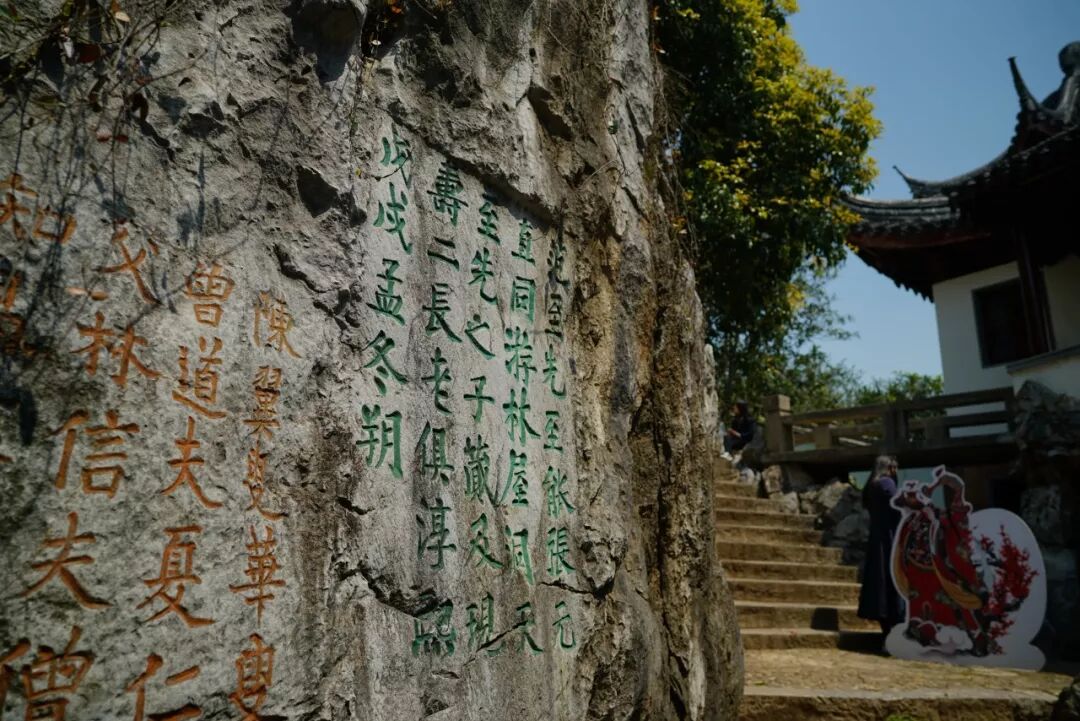 范至先至能張元
直同游林屋洞天
至先之子藏 現
壽二長老俱淳熙
戊戌孟冬朔
陳 叟華叟
曾道夫夏仁
父 林信夫僧
知